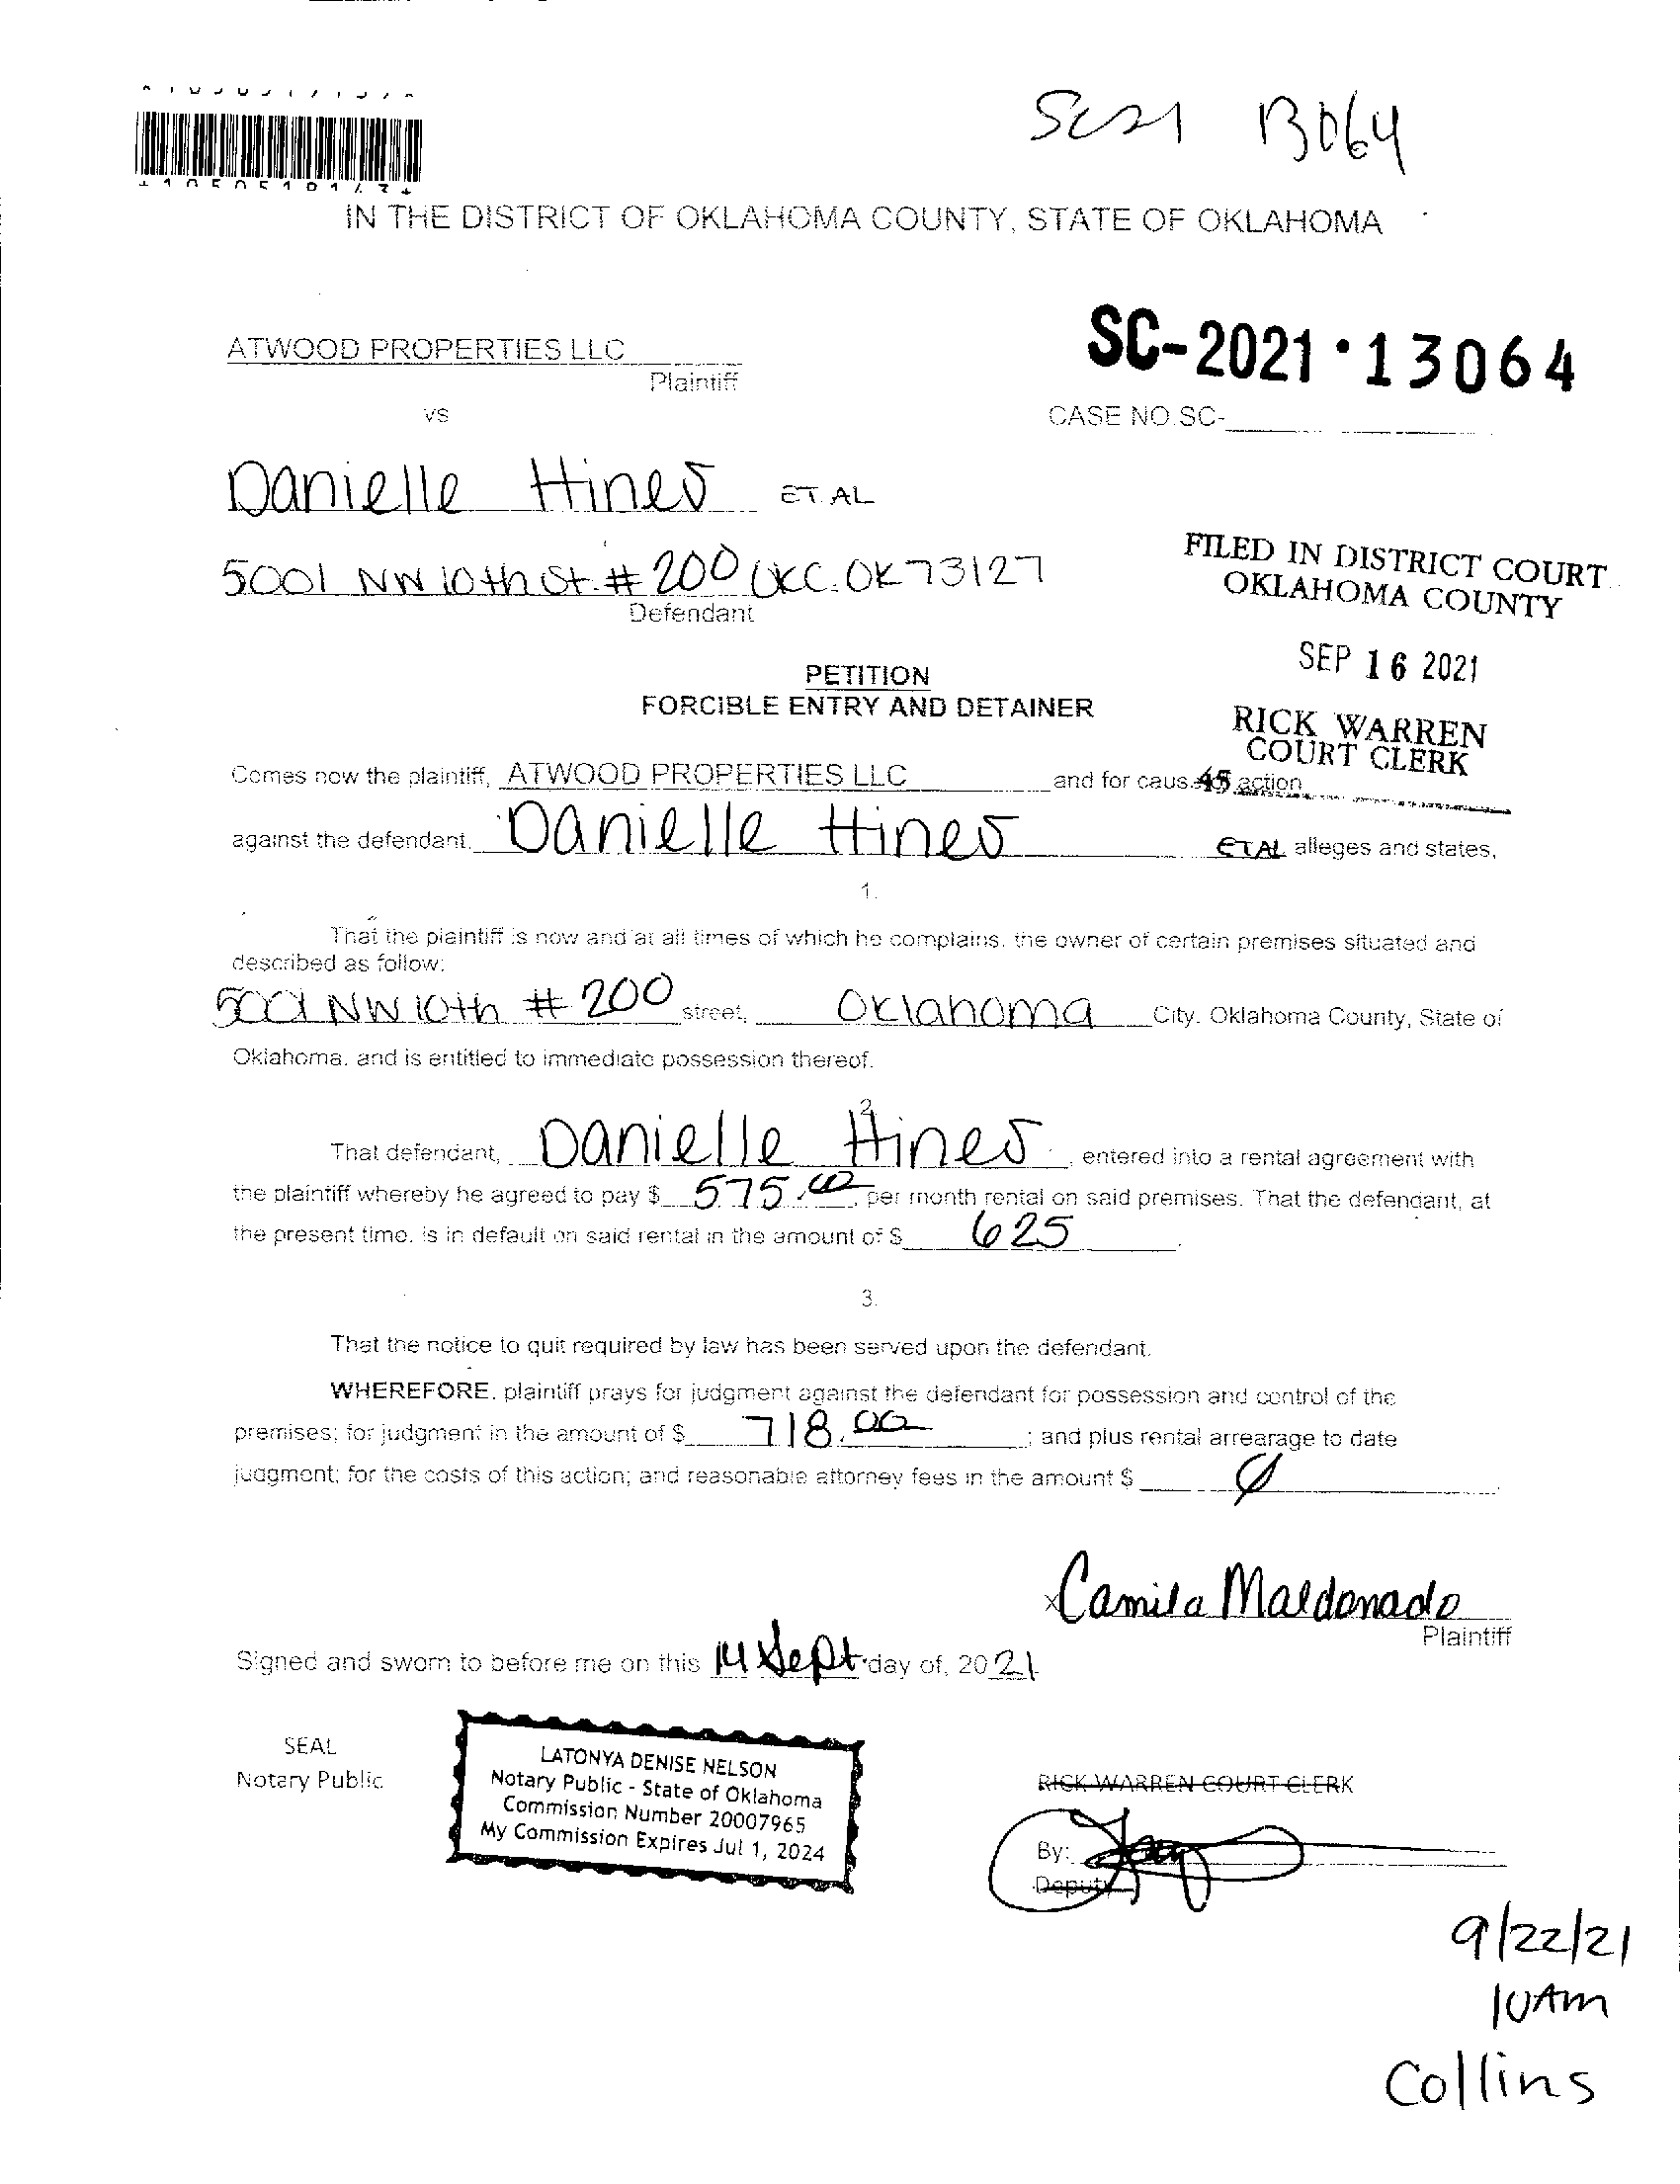 SC21 13064
IN THE DISTRICT OF OKLAHOMA COUNTY, STATE OF OKLAHOMA
ATWOOD PROPERTIES LLC
Plaintiff
SC-2021·13064
vs
CASE NO.SC-
Danielle Hines ET. AL
5001 NW 10th St. # 200 OKC. OK 73127
Defendant
FILED IN DISTRICT COURT
OKLAHOMA COUNTY
SEP 16 2021
RICK WARREN
COURT CLERK
45
PETITION
FORCIBLE ENTRY AND DETAINER
Comes now the plaintiff, ATWOOD PROPERTIES LLC and for caus action
against the defendant, Danielle Hines ETAL alleges and states,
1.
That the plaintiff is now and at all times of which he complains, the owner of certain premises situated and
described as follow:
5001 NW 10th # 200 street, Oklahoma City, Oklahoma County, State of
Oklahoma, and is entitled to immediate possession thereof.
2.
That defendant, Danielle Hines, entered into a rental agreement with
the plaintiff whereby he agreed to pay $ 575.00, per month rental on said premises. That the defendant, at
the present time, is in default on said rental in the amount of $ 625.
3.
That the notice to quit required by law has been served upon the defendant.
WHEREFORE, plaintiff prays for judgment against the defendant for possession and control of the
premises; for judgment in the amount of $ 718.00; and plus rental arrearage to date
judgment; for the costs of this action; and reasonable attorney fees in the amount $ Ø
x Camila Maldonado
Plaintiff
Signed and sworn to before me on this 14 Sept day of, 2021
SEAL
Notary Public
LATONYA DENISE NELSON
Notary Public - State of Oklahoma
Commission Number 20007965
My Commission Expires Jul 1, 2024
RICK WARREN COURT CLERK
By:
Deputy
9/22/21
10AM
Collins